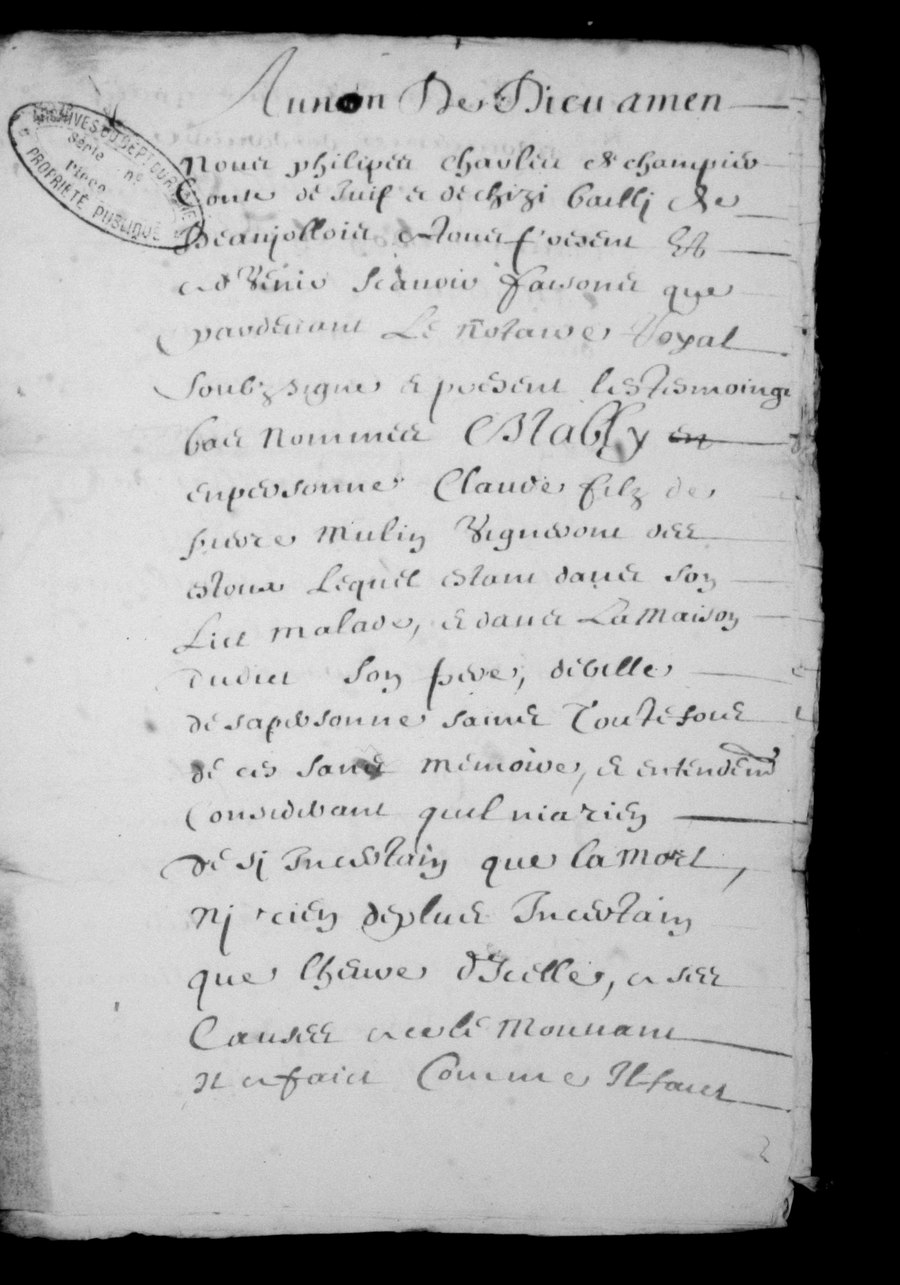 Au nom De Dieu amen
Nous philipes charles de champier
Conte de Juif et de chizi bailly de
Beaujollois a tous presens Et
a Venir scavoir faisons que
pardevant Le notaire Royal
soubzsigne et presens les tesmoings
bas nommes Estably en
en personne Claude filz de
pierre mulin Vigneront des
estoux Lequel estant dans son
Lict malade, et dans La Maison
dudict son pere, debille
de sa personne saine Toutefois
de ces sans memoire, et entendem
Considerant quil nia rien
de sj Incertain que la mort,
nj rien de plus Incertain
que lheure dIcelle, a ses
Causes a ce le Mouvant
Il a faict Comme Il faict
ARCHIVES DU DEPT DU RHÔNE
Série n°
Pièce
PROPRIÉTÉ PUBLIQUE